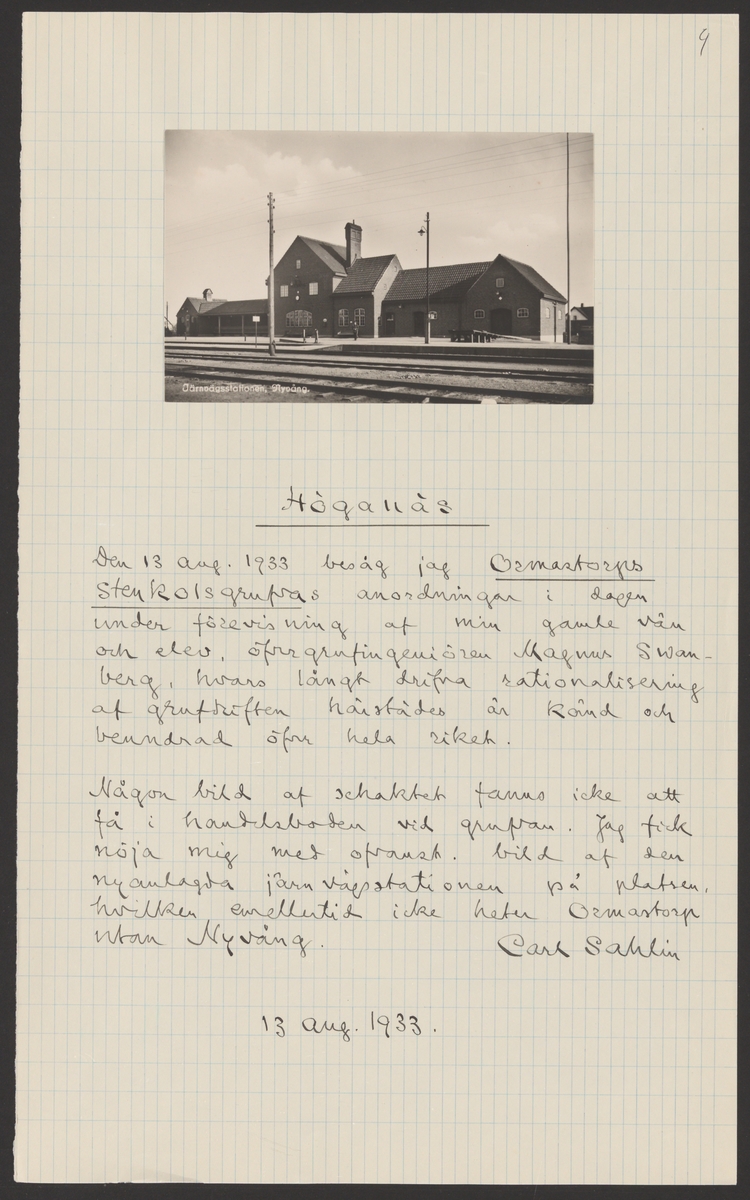 9
Järnvägsstationen, Nyvång.
Höganäs
Den 13 aug. 1933 besåg jag Ormastorps
Stenkolsgrufvas anordningar i dagen
under förevisning af min gamle vän
och elev, öfvergrufingeniören Magnus Swan-
berg, hvars långt drifna rationalisering
af grufdriften härstädes är känd och
beundrad öfver hela riket.
Någon bild af schaktet fanns icke att
få i handelsboden vid grufvan. Jag fick
nöja mig med ofvanst. bild af den
nyanlagda järnvägsstationen på platsen,
hvilken emellertid icke heter Ormastorp
utan Nyvång. Carl Sahlin
13 aug. 1933.